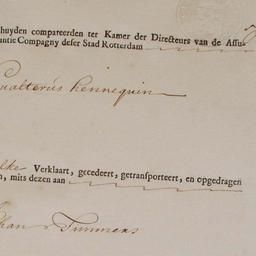 huyden compareerden ter Kamer der Directeurs van de Assu-
antie Compagny deser Stad Rotterdam
ualterus Hennequin
elke Verklaart, gecedeert, getransporteert, en opgedragen
n, mits dezen aan
han Timmers